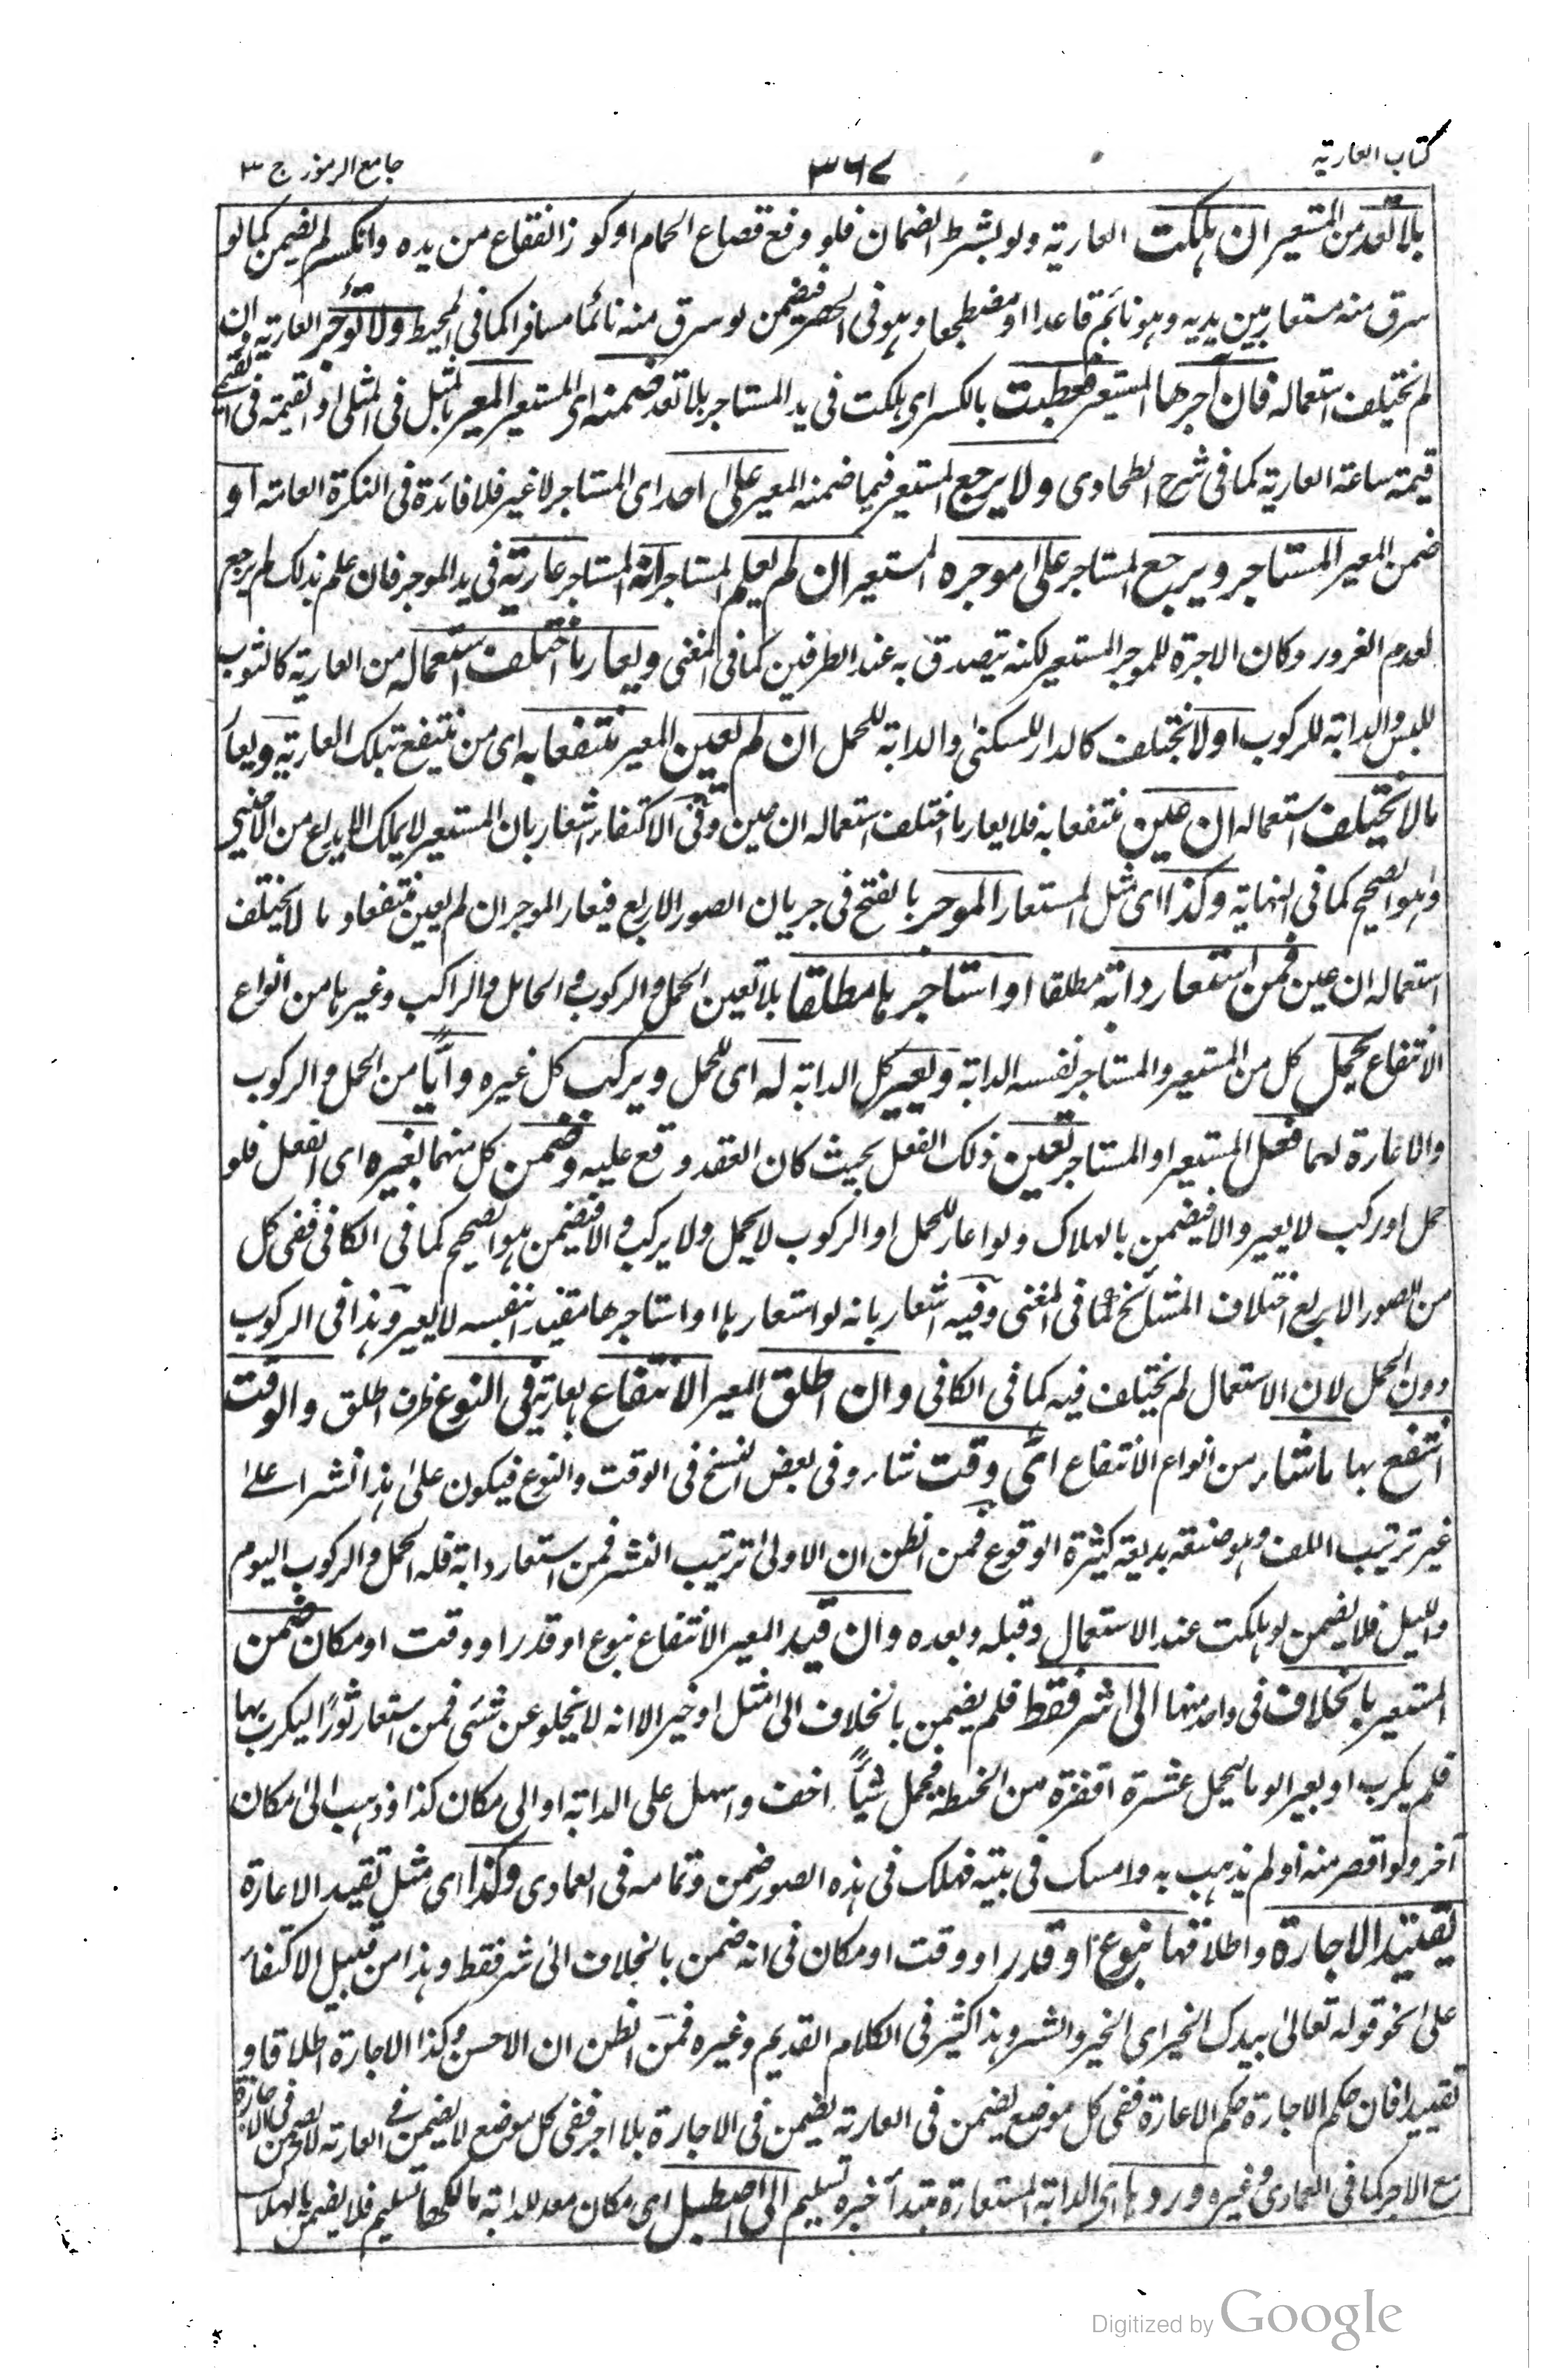 كتاب العارية
٣٦٧
جامع الرموز ج ٣
بلا تعد من المستعير ان هلكت العارية ولو بشرط الضمان فلو وقع قصاع الحمام او كوز الفقاع من يده وانكسر لم يضمن كما لو
سرق منه مستعار بين يديه وهو نائم قاعدا او مضطجعا وهو فى الحضر فيضمن لو سرق منه نائما مسافرا كما فى المحيط ولا تؤجر العارية وان
لم يختلف استعماله فان آجرها المستعير فعطبت بالكسر اى هلكت فى يد المستاجر بلا تعد ضمنه اى المستعير المعير بالمثل فى المثلى او القيمة فى القيمى
قيمة ساعة العارية كما فى شرح الطحاوى ولا يرجع المستعير فيما ضمنه المعير على احد اى المستاجر لا غير فلا فائدة فى النكرة العامة او
ضمن المعير المستاجر ويرجع المستاجر على موجره المستعير ان لم يعلم المستاجر انه المستاجر عارية فى يد الموجر فان علم بذلك لم يرجع
لعدم الغرور وكان الاجرة للموجر المستعير لكنه يتصدق به عند الطرفين كما فى المغنى ويعار ما اختلف استعماله من العارية كالثوب
للبس والدابة للركوب او لا يختلف كالدار للسكنى والدابة للحمل ان لم يعين المعير منتفعا به اى من ينتفع بتلك العارية ويعار
ما لا يختلف استعماله ان عين منتفعا به فلا يعار ما اختلف استعماله ان عين وفى الاكتفاء اشعار بان المستعير لا يملك الايداع من الاجنبى
وهو الصحيح كما فى النهاية وكذا اى مثل المستعار الموجر بالفتح فى جريان الصور الاربع فيعار الموجر ان لم يعين منتفعا وما لا يختلف
استعماله ان عين فمن استعار دابة مطلقا او استاجرها مطلقا بلا تعين الحمل والركوب والحامل والراكب وغيرها من انواع
الانتفاع يحمل كل من المستعير والمستاجر نفسه الدابة ويعير كل الدابة له اى للحمل ويركب كل غيره وايًّا من الحمل والركوب
والاعارة لهما فعل المستعير او المستاجر تعين ذلك الفعل بحيث كان العقد وقع عليه وضمن كل منهما بغيره اى الفعل فلو
حمل او ركب لا يعير والا فيضمن بالهلاك ولو اعار للحمل او الركوب لا يحمل ولا يركب والا فيضمن هو الصحيح كما فى الكافى ففى كل
من الصور الاربع اختلاف المشائخ كما فى المغنى وفيه اشعار بانه لو استعارها او استاجرها مقيدا بنفسه لا يعير وهذا فى الركوب
دون الحمل لان الاستعمال لم يختلف فيه كما فى الكافى وان اطلق المعير الانتفاع بعارية فى النوع ظرف اطلق والوقت
انتفع بها ما شاء من انواع الانتفاع اىّ وقت شاء وفى بعض النسخ فى الوقت والنوع فيكون على هذا نشرا على
غير ترتيب اللف وهو صنعة بديعة كثيرة الوقوع فمن الظن ان الاولى ترتيب النشر فمن استعار دابة فله الحمل والركوب اليوم
والليل فلا يضمن لو هلكت عند الاستعمال وقبله وبعده وان قيد المعير الانتفاع بنوع او قدر او وقت او مكان ضمن
المستعير بالخلاف فى واحد منها الى شر فقط فلم يضمن بالخلاف الى مثل او خير الا انه لا يخلو عن شئ فمن استعار ثورًا ليكرب بها
فلم يكرب او بعيرا لو ما ليحمل عشرة اقفزة من الحنطة فحمل شيأً اخف واسهل على الدابة او الى مكان كذا وذهب الى مكان
آخر ولو اقصر منه او لم يذهب به وامسك فى بيته فهلك فى هذه الصور ضمن وتمامه فى العمادى وكذا اى مثل تقييد الاعارة
تقييد الاجارة واطلاقها بنوع او قدر او وقت او مكان فى انه ضمن بالخلاف الى شر فقط وهذا من قبيل الاكتفاء
على نحو قوله تعالى بيدك الخير اى الخير والشر وهذا كثير فى الكلام القديم وغيره فمن الظن ان الاحسن وكذا الاجارة اطلاقا و
تقييدا فان حكم الاجارة حكم الاعارة ففى كل موضع يضمن فى العارية يضمن فى الاجارة بلا اجر ففى كل موضع لا يضمن فى العارية لا يضمن فى الاجارة
مع الاجر كما فى العمادى وغيره وردها اى الدابة المستعارة مبتدأ خبره تسليم الى اصطبل اى مكان معد للدابة مالكها تسليم فلا يضمن بالهلاك